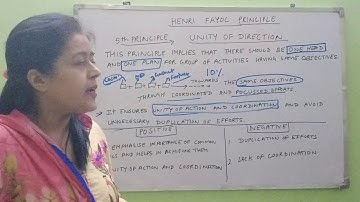 HENRI FAYOL PRINCIPLE
5th PRINCIPLE UNITY OF DIRECTION
THIS PRINCIPLE IMPLIES THAT THERE SHOULD BE ONE HEAD
AND ONE PLAN FOR GROUP OF ACTIVITIES HAVING SAME OBJECTIVES.
10%
TOWARDS THE SAME OBJECTIVES
THROUGH COORDINATED AND FOCUSSED EFFORTS
IT ENSURES UNITY OF ACTION AND COORDINATION AND AVOID
UNNECESSARY DUPLICATION OF EFFORTS.
POSITIVE
EMPHASISE IMPORTANCE OF COMMON
AND HELPS IN ACHIEVING THEM
UNITY OF ACTION AND COORDINATION
NEGATIVE
1. DUPLICATION OF EFFORTS
2. LACK OF COORDINATION